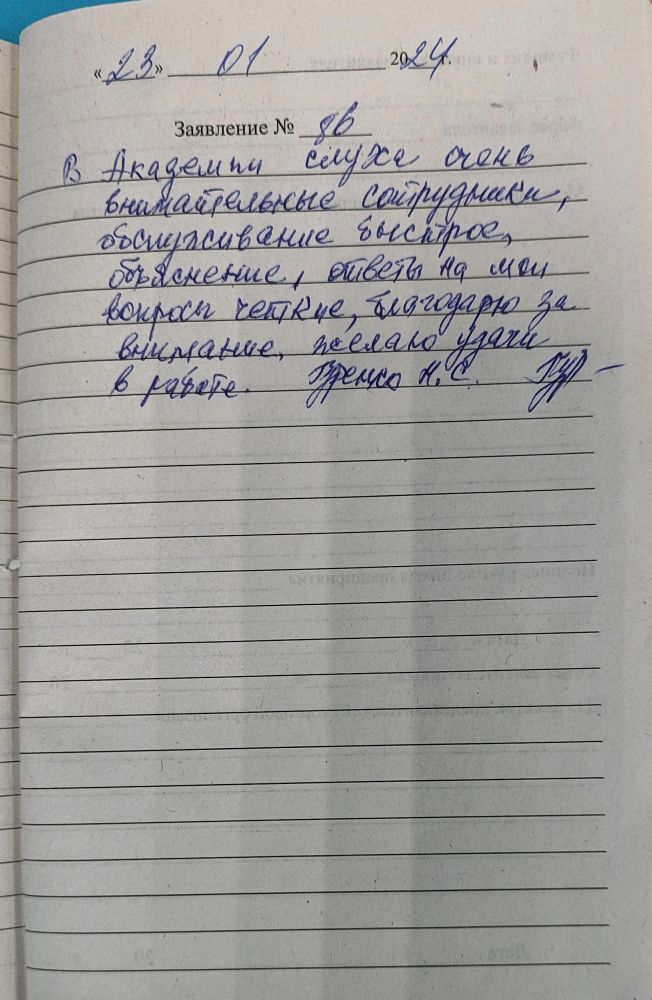 «23» 01 2024 г.
Заявление № 86
В Академии слуха очень
внимательные сотрудники,
обслуживание быстрое,
объяснение, ответы на мои
вопросы четкие, благодарю за
внимание, желаю удачи
в работе. Н.С.